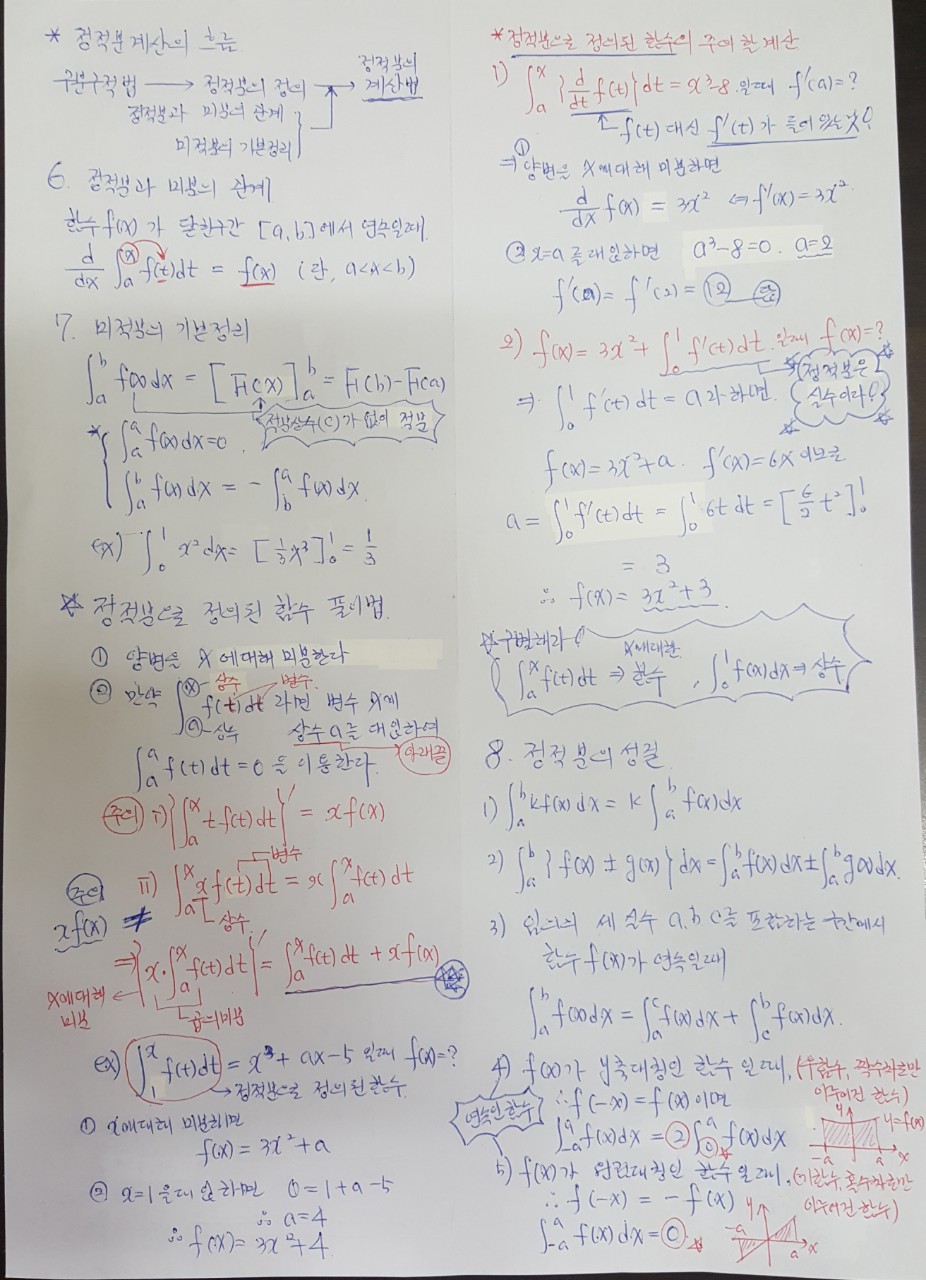 * 정적분계산의 흐름
구분구적법 → 정적분의 정의 → 정적분의 계산법
정적분과 미분의 관계
미적분의 기본정리
6. 정적분과 미분의 관계
함수 f(x)가 닫힌구간 [a,b]에서 연속일때
d/dx ∫_a^x f(t)dt = f(x) (단, a<x<b)
7. 미적분의 기본정리
∫_a^b f(x)dx = [F(x)]_a^b = F(b)-F(a)
적분상수(C)가 없이 적분
* ∫_a^a f(x)dx=0,
∫_a^b f(x)dx = -∫_b^a f(x)dx.
ex) ∫_0^1 x²dx = [⅓x³]_0^1 = 1/3
☆ 정적분으로 정의된 함수 풀이법
① 양변을 x에 대해 미분한다
② 만약 ∫_a^x f(t)dt 라면 변수 x에
상수 변수 상수
상수 a를 대입하여 아래끝
∫_a^a f(t)dt=0 을 이용한다.
주의 i) {∫_a^x t f(t)dt}' = xf(x)
변수
주의 ii) ∫_a^x x f(t)dt = x∫_a^x f(t)dt
상수
xf(x) ≠
⇒ {x·∫_a^x f(t)dt}' = ∫_a^x f(t)dt + xf(x)
x에대해 미분
곱의미분
ex) ∫_1^x f(t)dt = x³+ax-5 일때 f(x)=?
→정적분으로 정의된 함수
① x에대해 미분하면
f(x)=3x²+a
② x=1을대입하면 0=1+a-5
∴ a=4
∴ f(x)=3x²+4
* 정적분으로 정의된 함수의 주의 할 계산
1) ∫_a^x {d/dt f(t)}dt = x³-8 일때 f'(a)=?
f(t)대신 f'(t)가 들어 있는것!
⇒ ① 양변을 x에대해 미분하면
d/dx f(x) = 3x² ⇔ f'(x)=3x²
② x=a를대입하면 a³-8=0. a=2
f'(a)=f'(2)=12 답
2) f(x)=3x²+∫_0^1 f'(t)dt 일때 f(x)=?
정적분은 실수이다!
⇒ ∫_0^1 f'(t)dt = a라하면.
f(x)=3x²+a. f'(x)=6x이므로
a=∫_0^1 f'(t)dt = ∫_0^1 6t dt = [6/2 t²]_0^1
= 3
∴ f(x)=3x²+3
☆구별해라!
∫_a^x f(t)dt ⇒ x에대한 함수, ∫_0^1 f(x)dx ⇒ 상수
8. 정적분의 성질
1) ∫_a^b kf(x)dx = k∫_a^b f(x)dx
2) ∫_a^b {f(x) ± g(x)}dx = ∫_a^b f(x)dx ± ∫_a^b g(x)dx.
3) 임의의 세 실수 a,b,c를 포함하는 구간에서
함수 f(x)가 연속일때
∫_a^b f(x)dx = ∫_a^c f(x)dx + ∫_c^b f(x)dx.
4) f(x)가 y축대칭인 함수 일때, (우함수, 짝수차로만 이루어진 함수)
연속인함수
∴ f(-x)=f(x)이면
∫_{-a}^a f(x)dx = 2∫_0^a f(x)dx
y y=f(x) -a a x
5) f(x)가 원점대칭인 함수일때, (기함수, 홀수차로만 이루어진 함수)
∴ f(-x) = -f(x)
∫_{-a}^a f(x)dx = 0
y -a a x